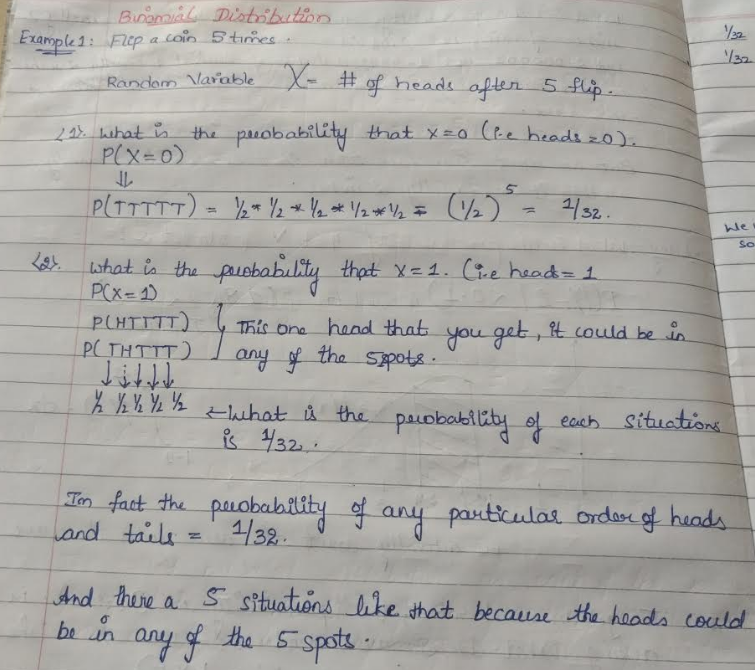 Binomial Distribution
Example 1: Flip a coin 5 times.
Random Variable X = # of heads after 5 flip.
<1>. What is the probability that x=0 (i.e heads=0).
P(X=0)
⇓
P(TTTTT) = 1/2 * 1/2 * 1/2 * 1/2 * 1/2 = (1/2)^5 = 1/32.
<2>. What is the probability that X=1. (i.e head=1
P(X=1)
P(HTTTT) } This one head that you get, it could be in
P(THTTT) any of the 5 spots.
↓↓↓↓↓
1/2 1/2 1/2 1/2 1/2 ← What is the probability of each situations
is 1/32.
In fact the probability of any particular order of heads
and tails = 1/32.
And there a 5 situations like that because the heads could
be in any of the 5 spots.
1/32
1/32
We
so